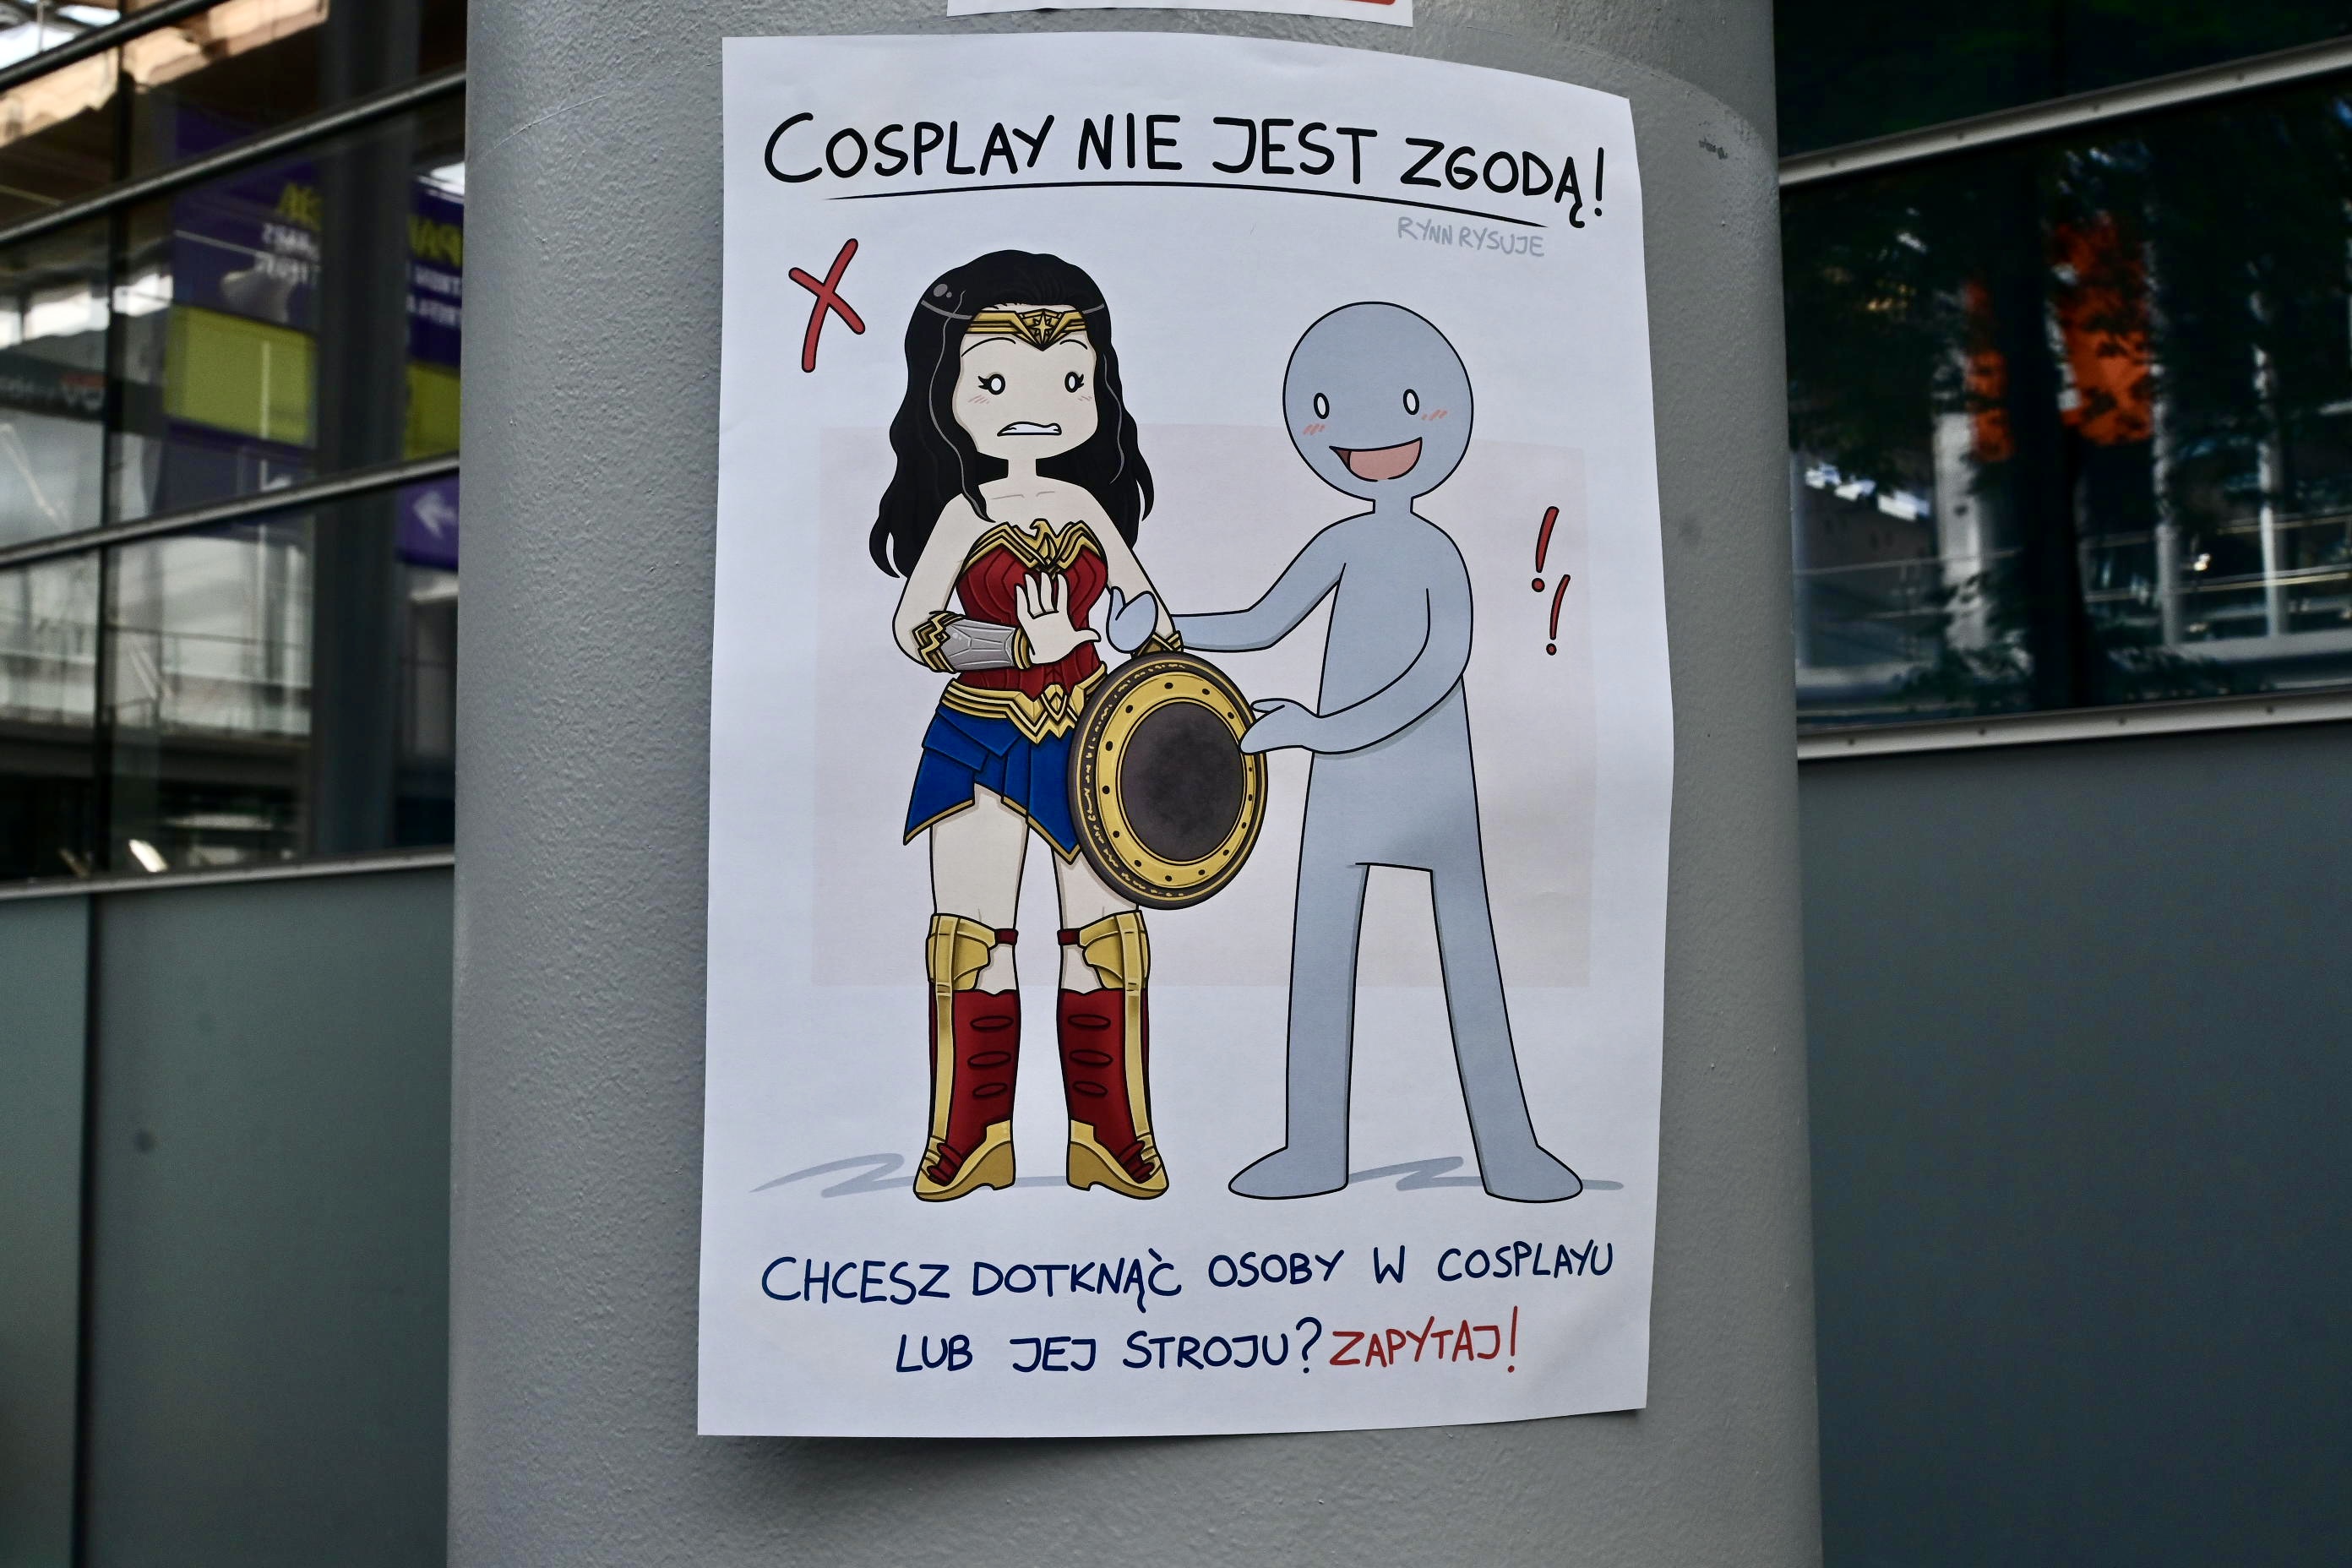 COSPLAY NIE JEST ZGODĄ!
RYNN RYSUJE
CHCESZ DOTKNĄĆ OSOBY W COSPLAYU
LUB JEJ STROJU? ZAPYTAJ!